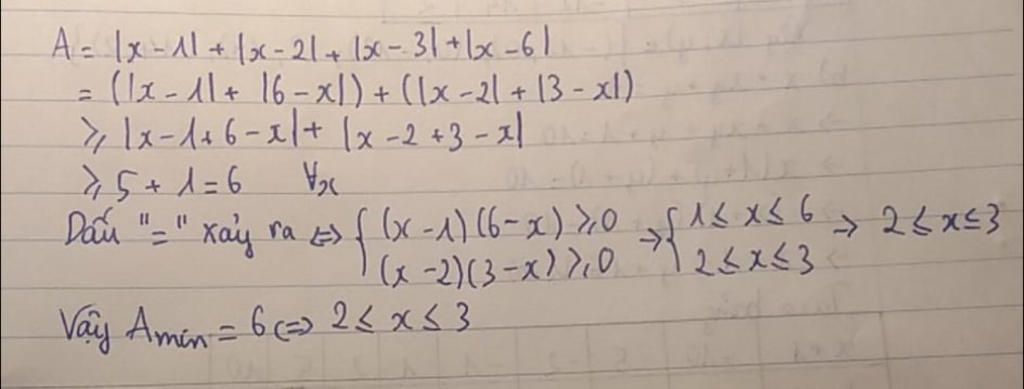 A = |x - 1| + |x - 2| + |x - 3| + |x - 6|
= (|x - 1| + |6 - x|) + (|x - 2| + |3 - x|)
⩾ |x - 1 + 6 - x| + |x - 2 + 3 - x|
⩾ 5 + 1 = 6 ∀x
Dấu "=" xảy ra ⇔ { (x - 1)(6 - x) ⩾ 0 → { 1 ≤ x ≤ 6 → 2 ≤ x ≤ 3
(x - 2)(3 - x) ⩾ 0 2 ≤ x ≤ 3
Vậy Amin = 6 ⇔ 2 ≤ x ≤ 3